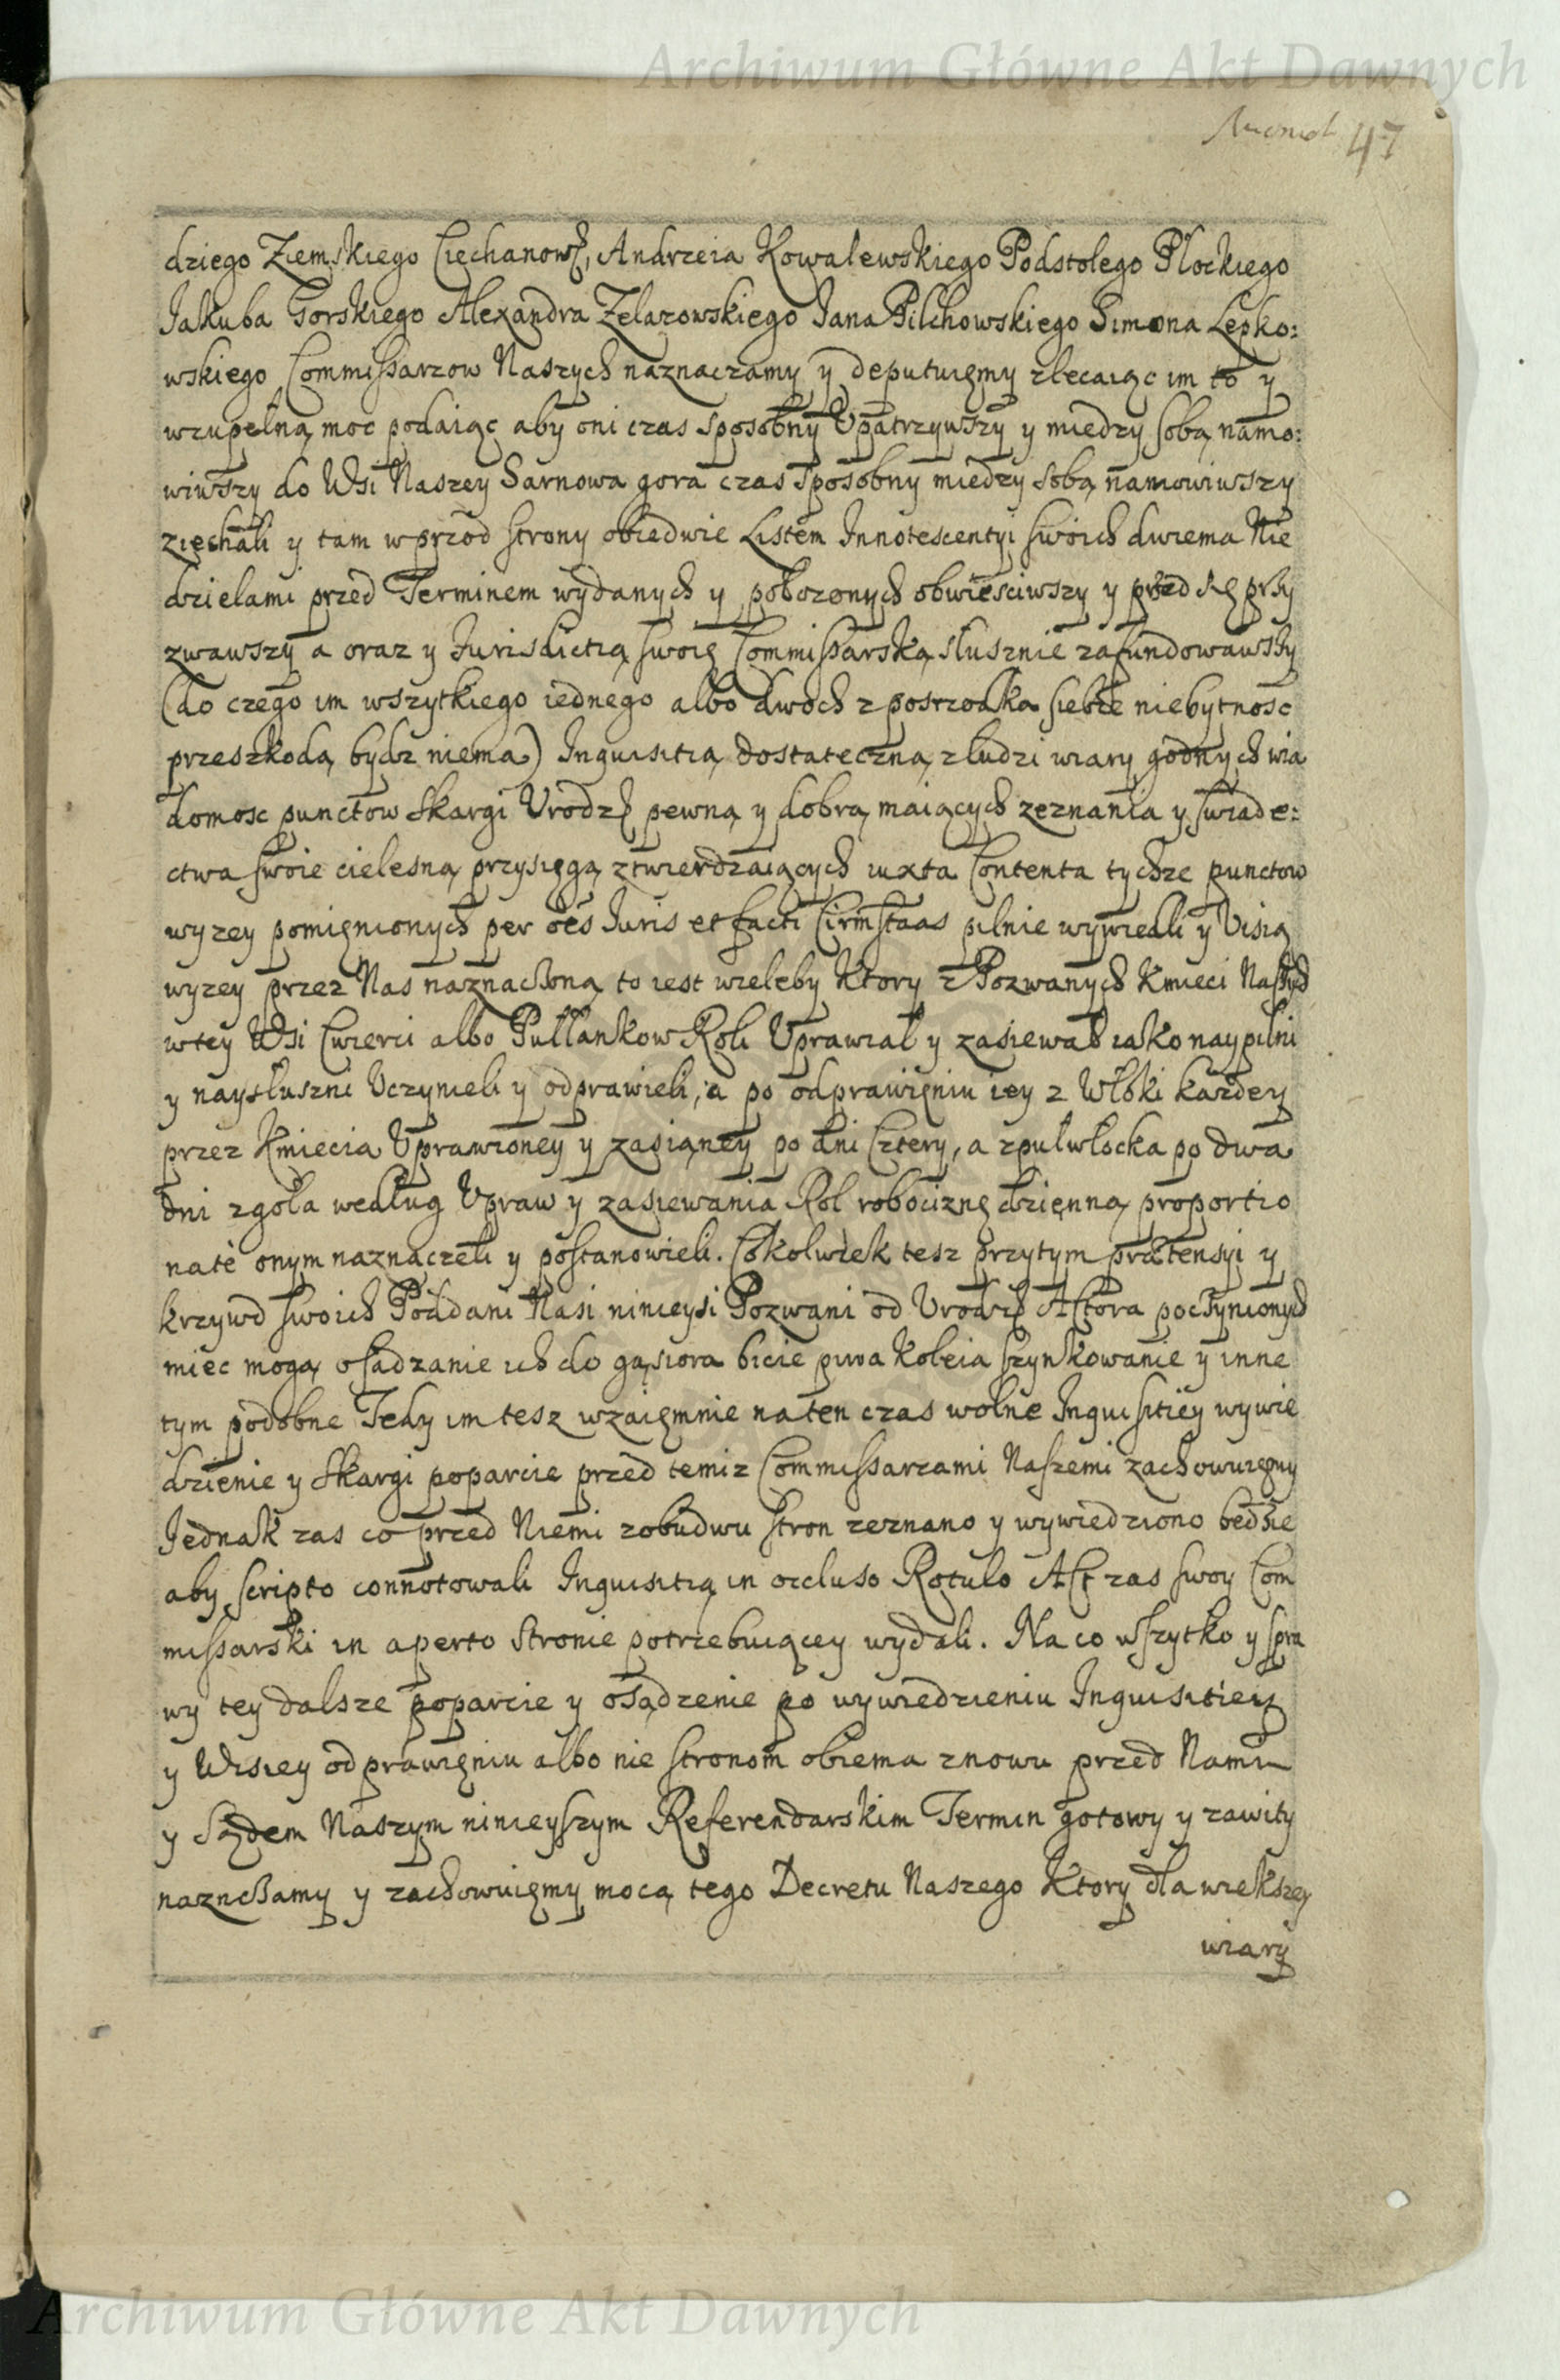 Archiwum Główne Akt Dawnych
47
dziego Ziemskiego Ciechanow, Andrzeia Kowalewskiego Podstolego Plockiego
Jakuba Gorskiego Alexandra Zelazowskiego Jana Pilchowskiego Simona Lepko:
wskiego Commissarzow Naszych naznaczamy y deputuięmy zlecaiąc im to y
wzupełną moc podaiąc aby oni czas sposobny Upatrzywszy y miedzy sobą namo:
wiwszy do Wsi Naszey Sarnowa gora czas sposobny miedzy sobą namowiwszy
zięchali y tam wprzod strony obiedwie Listem Innotescentyi swoich dwiema Nie
dzielami przed Terminem wydanych y położonych obwiesciwszy y przed się przy
zwawszy a oraz y Jurisdictią swoię Commissarską slusznie zafundowawszy
(do czego im wszytkiego iednego albo dwoch z posrzodka siebie niebytnosc
przeszkodą bydz niema) Inquisitią dostateczną z ludzi wiary godnych wia
domosc punctow skargi Urodz pewną y dobrą maiących zeznania y swiade:
ctwa swoie cielesną przysięgą ztwierdzaiących iuxta Contenta tychze punctow
wyzey pomięnionych per oes Juris et facti Circmstaas pilnie wywiedli y Visią
wyzey przez Nas naznaczoną to iest wieleby Ktory z Pozwanych Kmieci Naszych
wtey Wsi Cwierci albo Pullankow Roli Uprawial y zasiewal iako naypilni
y naysłuszni Uczynieli y odprawieli, a po odprawięniu iey z Włoki kazdey
przez Kmiecia Uprawioney y zasianey po dni Cztery, a zpulwłocka po dwa
dni zgoła według Upraw y zasiewania Rol robociznę dzięnną proportio
nate onym naznaczeli y postanowieli. Cokolwiek tesz przytym prætensyi y
krzywd swoich Poddani Nasi ninieysi Pozwani od Urodz Actora poczynionych
miec mogą osadzanie ich do gąsiora bicie piwa koleia szynkowanie y inne
tym podobne Tedy im tesz wzaięmnie na ten czas wolne Inquisitiey wywie
dzienie y skargi poparcie przed temiz Commissarzami Naszemi zachowuięmy
Jednak zas co przed Niemi zobudwu stron zeznano y wywiedziono bedzie
aby scripto connotowali Inquisitią in occluso Rotulo Act zas swoy Com
missarski in aperto stronie potrzebuiącey wydali. Na co wszytko y spra
wy tey dalsze poparcie y osądzenie po wywiedzieniu Inquisitiey
y Wisiey odprawięniu albo nie stronom obiema znowu przed Nami
y Sądem Naszym ninieyszym Referendarskim Termin gotowy y zawity
naznczamy y zachowuięmy mocą tego Decretu Naszego Ktory dla wiekszey
wiary
Archiwum Główne Akt Dawnych